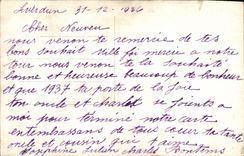 Averdun 31-12-1936
Cher Neuveu
nous venon te remercie de tes
bon souhait Mille foi merci a notre
tour nous venon te la souhaité
bonne et heureuse beaucoup de bonheur
et que 1937 te porte de la joie
ton oncle et charlot se joients a
moi pour terminé notre carte
entembrassans de tous cœur ta tante
oncle et cousin qui t'aime
Josephine Julien Charles Pontems